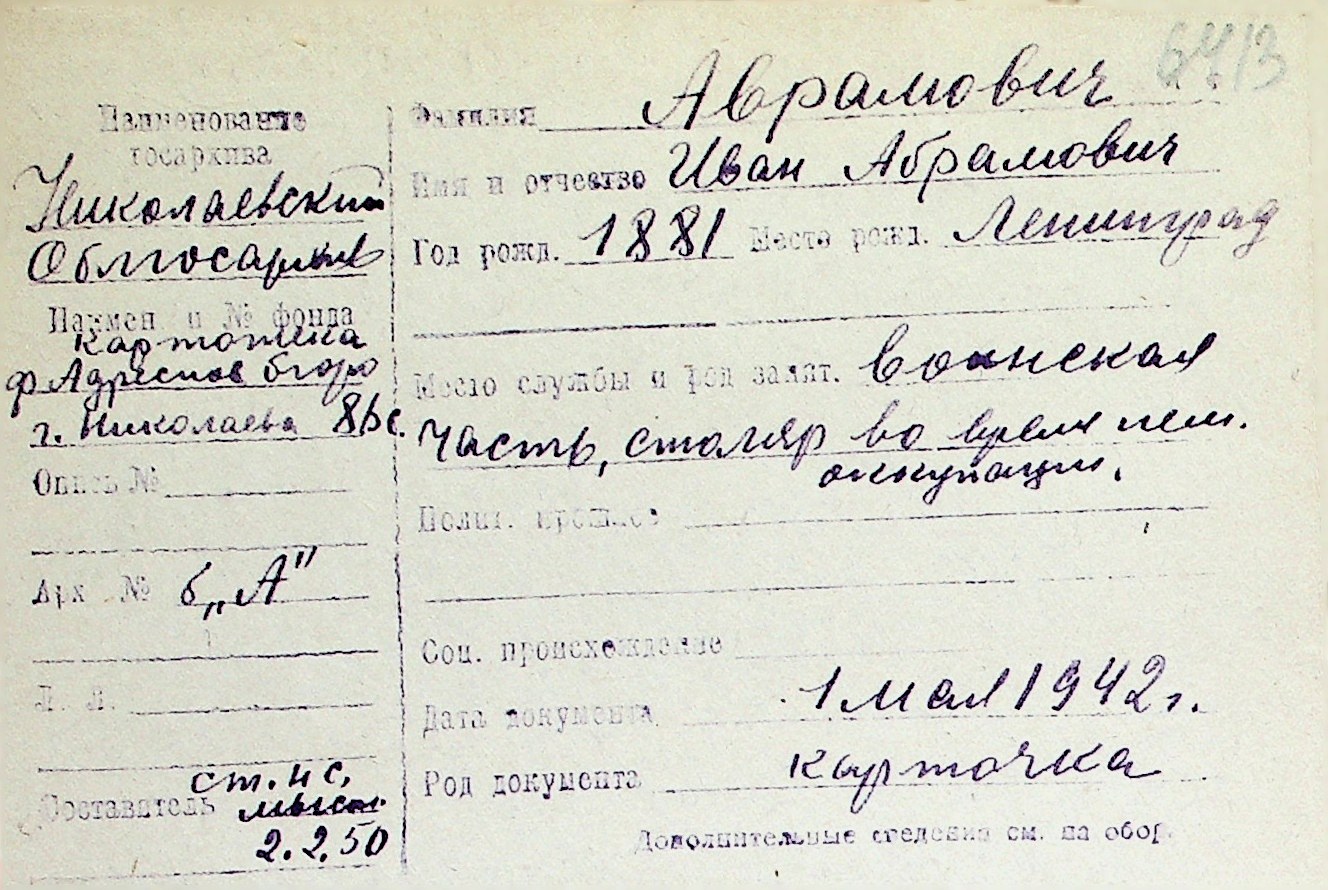 6413
Наименование
госархива
Николаевский
Облгосархив
Наимен. и № фонда
картотека
ф Адресное бюро
г. Николаева
Опись №
Арх. № б „А"
Л. Л.
ст. н с.
Составитель
2.2.50
Фамилия Аврамович
Имя и отчество Иван Абрамович
Год рожд. 1881 Место рожд. Ленинград
Место службы и род занят. воинская
часть, столяр во время нем.
оккупации.
Полит. прошлое
Соц. происхождение
Дата документа 1 мая 1942 г.
Род документа карточка
Дополнительные сведения см. на обор.